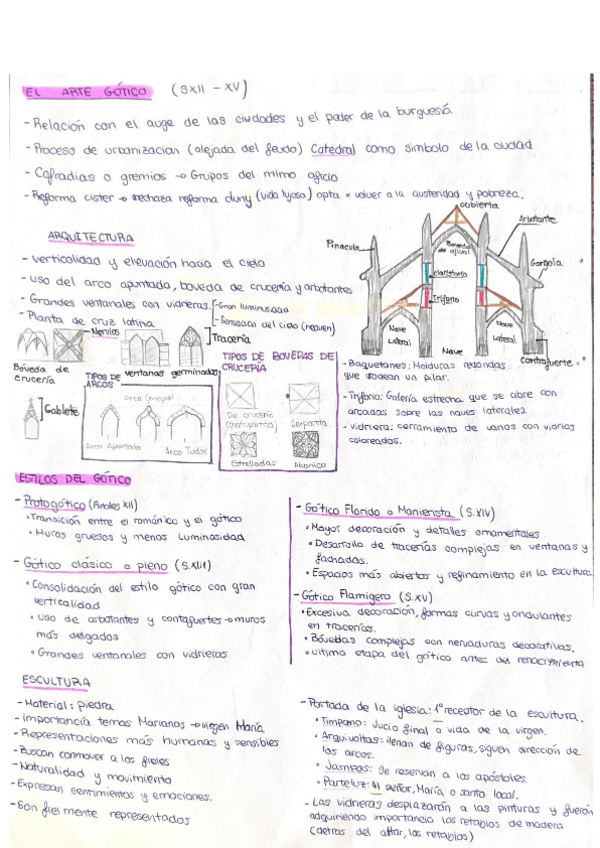 EL ARTE GÓTICO (SXII - XV)
- Relación con el auge de las ciudades y el poder de la burguesía
- Proceso de urbanización (alejada del feudo) Catedral como símbolo de la ciudad
- Cofradías o gremios → Grupos del mimo oficio
- Reforma cister → rechaza reforma cluny (vida lujosa) opta x volver a la austeridad y pobreza.
ARQUITECTURA
- verticalidad y elevación hacia el cielo
- uso del arco apuntado, boveda de crucería y arbotantes
- Grandes ventanales con vidrieras
- Gran luminosidad
- Sensación del cielo (heaven)
- Planta de cruz latina
Nervios
Tracería
Boveda de crucería
ventanas germinadas
Gablete
TIPOS DE ARCOS
Arco Conopial
Arco Apuntado
Arco Tudor
TIPOS DE BOVEDAS DE CRUCERÍA
De crucería cuatripartita
Sexpartita
Estrelladas
Abanico
cubierta
Pinaculo
Arbotante
Boveda de ojival
claristorio
Gargola
Triforio
Nave Lateral
Nave Lateral
Nave
Contrafuerte
- Baquetones: Molduras redondas que rodean un pilar.
- Triforio: Galería estrecha que se abre con arcadas sobre las naves laterales.
- vidriera: cerramiento de vanos con vidrios coloreados.
ESTILOS DEL GÓTICO
- Protogótico (Finales XII)
• Transición entre el románico y el gótico
• Muros gruesos y menos luminosidad
- Gótico clásico o pleno (S.XIII)
• Consolidación del estilo gótico con gran
verticalidad
• Uso de arbotantes y contafuertes → muros
más delgados
• Grandes ventanales con vidrieras
- Gótico Florido o Manierista (S.XIV)
• Mayor decoración y detalles ornamentales
• Desarrollo de tracerías complejas en ventanas y
fachadas.
• Espacios más abiertos y refinamiento en la escultura
- Gótico Flamigero (S.XV)
• Excesiva decoración, formas curvas y ondulantes
en tracerías.
• Bóvedas complejas con nervaduras decorativas.
• ultima etapa del gótico antes del renacimiento
ESCULTURA
- Material: Piedra
- Importancia temas Marianos → virgen María
- Representaciones más humanas y sensibles
- Buscan conmover a los fieles
- Naturalidad y movimiento
- Expresan sentimientos y emociones.
- Son fiel mente representados
- Portada de la iglesia: 1º receptor de la escultura.
• Timpano: Jucio final o vida de la virgen.
• Arquivoltas: llenan de figuras, siguen dirección de
los arcos.
• Jambas: Se reservan a los apóstoles.
• Parteluz: señor, María o santo local.
- Las vidrieras desplazarón a las pinturas y fuerón
adquiriendo importancia los retablos de madera
(detras del altar, los retablos)